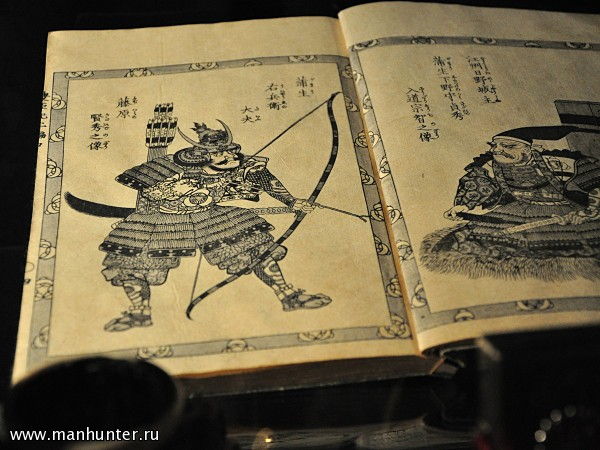 江州日野城主
蒲生下野守貞秀
入道宗智之像
蒲生
右兵衛
大夫
藤原
賢秀之像
www.manhunter.ru